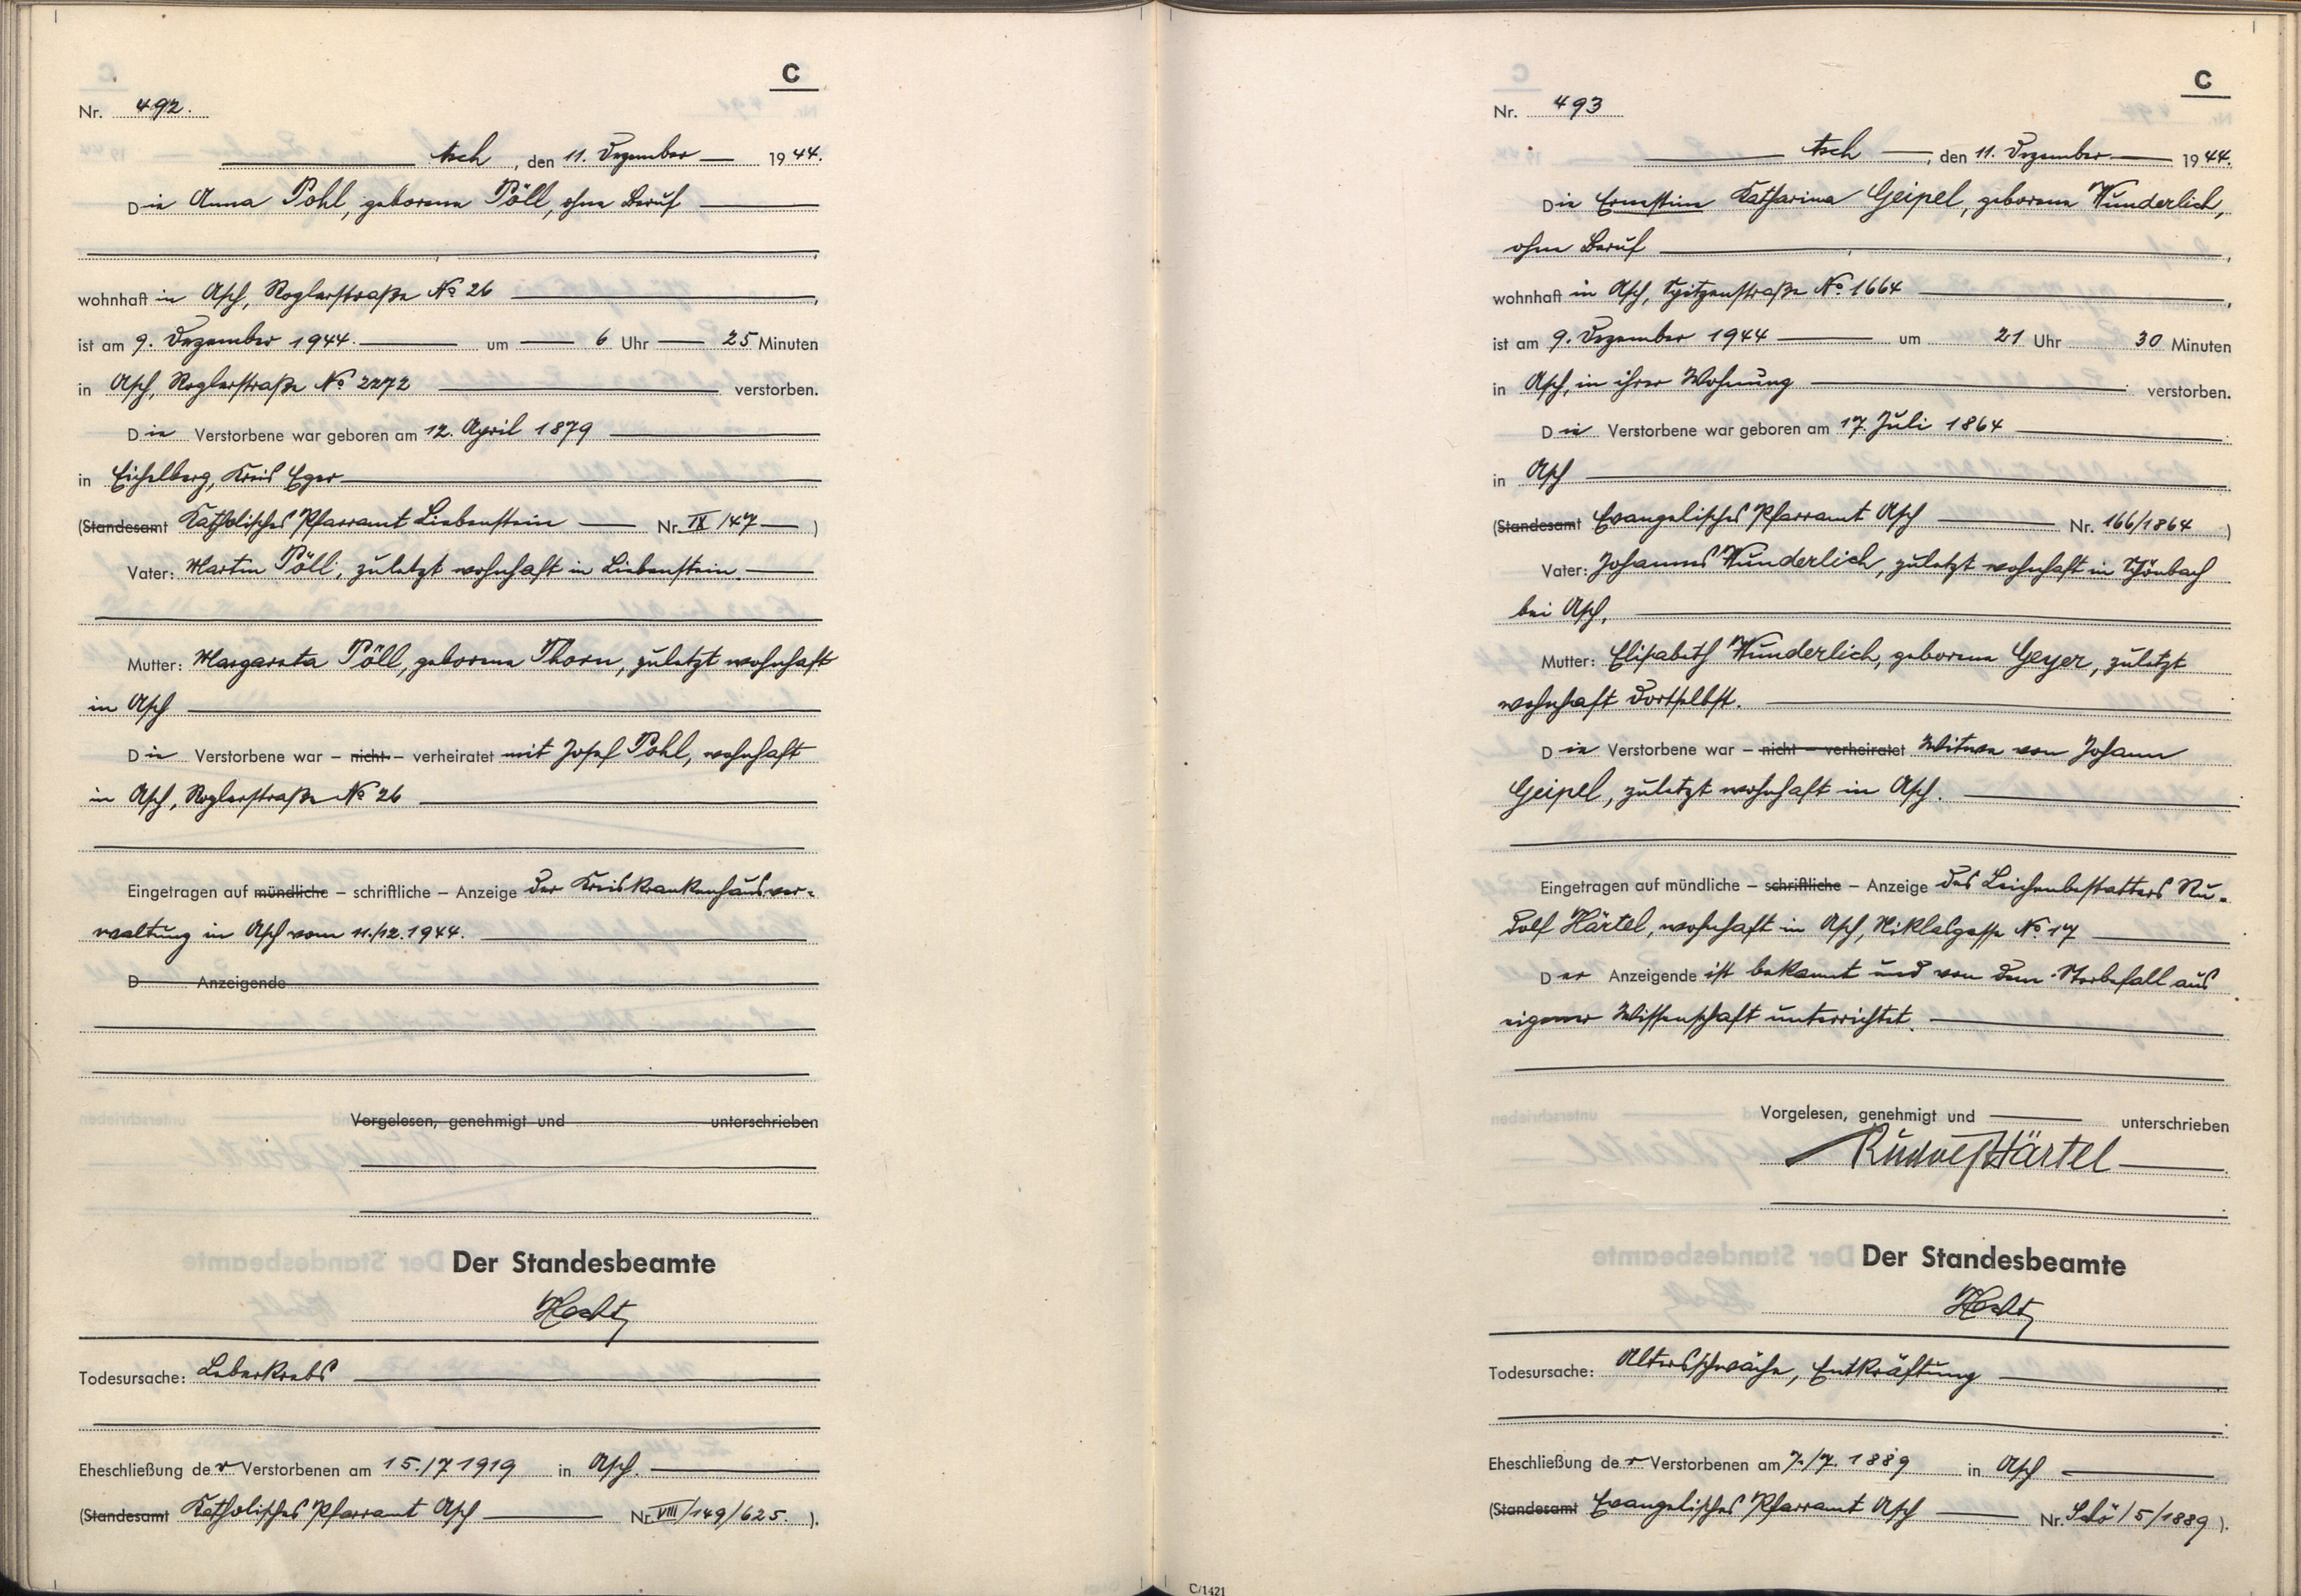 C
Nr. 492.
Asch, den 11. Dezember 1944.
Die Anna Pohl, geborene Pöll, ohne Beruf
wohnhaft in Asch, Roglerstraße No 26
ist am 9. Dezember 1944 um 6 Uhr 25 Minuten
in Asch, Roglerstraße No 2272 verstorben.
Die Verstorbene war geboren am 12. April 1879
in Eichelberg, Kreis Eger
(Standesamt Katholisches Pfarramt Liebenstein Nr. IX/47)
Vater: Martin Pöll, zuletzt wohnhaft in Liebenstein.
Mutter: Margareta Pöll, geborene Thorn, zuletzt wohnhaft
in Asch
Die Verstorbene war – nicht – verheiratet mit Josef Pohl, wohnhaft
in Asch, Roglerstraße No 26
Eingetragen auf mündliche – schriftliche – Anzeige der Kreiskrankenhausver-
waltung in Asch vom 11./12.1944.
D Anzeigende
Vorgelesen, genehmigt und unterschrieben
Der Standesbeamte
Hecht
Todesursache: Leberkrebs
Eheschließung der Verstorbenen am 15./7 1919 in Asch.
(Standesamt Katholisches Pfarramt Asch Nr. VIII/149/625.).
C
Nr. 493
Asch, den 11. Dezember 1944.
Die Ernestine Katharina Geipel, geborene Wunderlich,
ohne Beruf
wohnhaft in Asch, Spitzenstraße No. 1664
ist am 9. Dezember 1944 um 21 Uhr 30 Minuten
in Asch, in ihrer Wohnung verstorben.
Die Verstorbene war geboren am 17. Juli 1864
in Asch
(Standesamt Evangelisches Pfarramt Asch Nr. 166/1864)
Vater: Johannes Wunderlich, zuletzt wohnhaft in Schönbach
bei Asch,
Mutter: Elisabeth Wunderlich, geborene Geyer, zuletzt
wohnhaft dortselbst.
Die Verstorbene war – nicht – verheiratet Witwe von Johann
Geipel, zuletzt wohnhaft in Asch.
Eingetragen auf mündliche – schriftliche – Anzeige des Leichenbestatters Ru-
dolf Härtel, wohnhaft in Asch, Niklasgasse No 17
Der Anzeigende ist bekannt und von dem Sterbefall aus
eigener Wissenschaft unterrichtet.
Vorgelesen, genehmigt und unterschrieben
Rudolf Härtel
Der Standesbeamte
Hecht
Todesursache: Altersschwäche, Entkräftung
Eheschließung der Verstorbenen am 7./7. 1889 in Asch
(Standesamt Evangelisches Pfarramt Asch Nr. Schö/5/1889).
C/1421